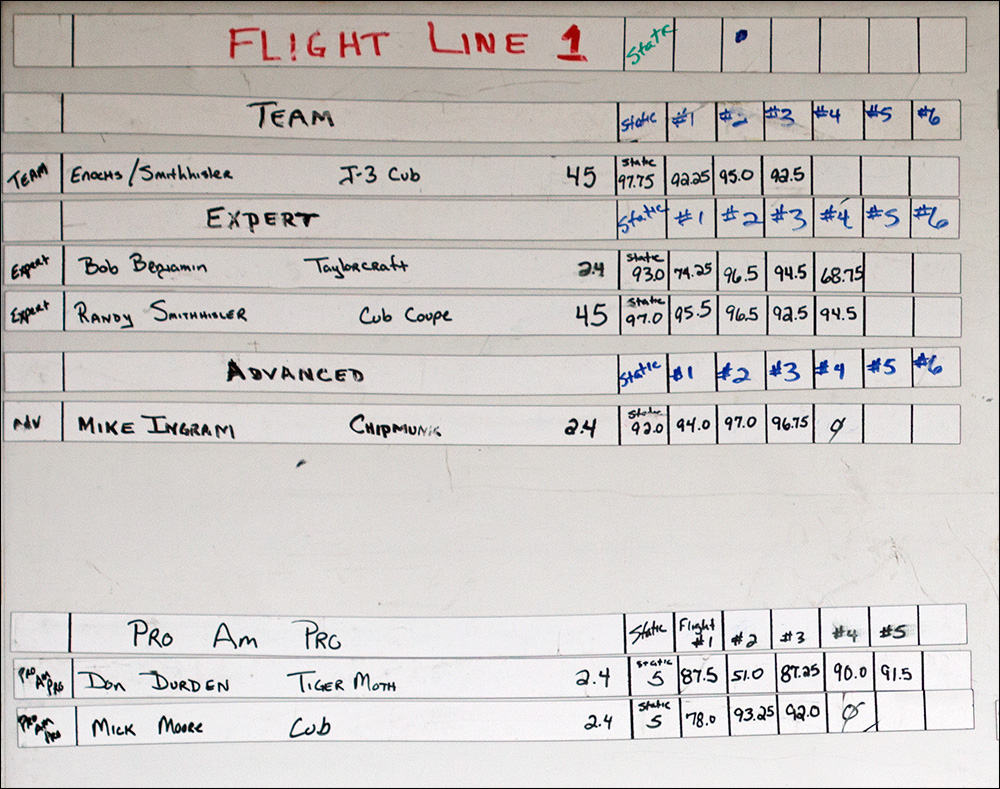 FLIGHT LINE 1 Static
TEAM Static #1 #2 #3 #4 #5 #6
TEAM ENOCHS/SMITHHISLER J-3 CUB 45 Static 97.75 92.25 95.0 92.5
EXPERT Static #1 #2 #3 #4 #5 #6
Expert Bob Benjamin Taylorcraft 2.4 Static 93.0 79.25 96.5 94.5 68.75
Expert RANDY SMITHHISLER CUB COUPE 45 Static 97.0 95.5 96.5 92.5 94.5
ADVANCED Static #1 #2 #3 #4 #5 #6
ADV MIKE INGRAM CHIPMUNK 2.4 Static 92.0 94.0 97.0 96.75 Ø
PRO AM PRO Static Flight #1 #2 #3 #4 #5
PRO AM PRO DON DURDEN TIGER MOTH 2.4 Static 5 87.5 51.0 87.25 90.0 91.5
PRO AM PRO MICK MOORE CUB 2.4 Static 5 78.0 93.25 92.0 Ø